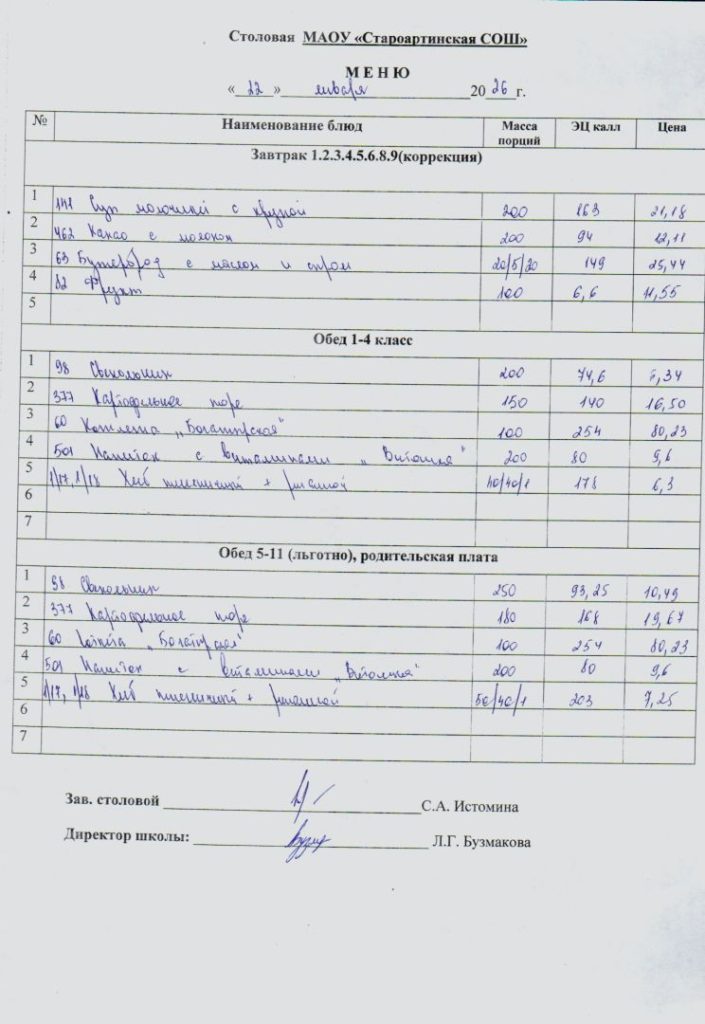 Столовая МАОУ «Староартинская СОШ»
М Е Н Ю
« 22 » января 20 26 г.
№ Наименование блюд Масса порций ЭЦ калл Цена
Завтрак 1.2.3.4.5.6.8.9(коррекция)
1 Суп молочный с крупой 200 163 21,18
2 462 Какао с молоком 200 94 12,11
3 63 Бутерброд с маслом и сыром 20/5/20 149 25,44
4 82 Фрукт 100 6,6 11,55
5
Обед 1-4 класс
1 98 Свекольник 200 74,6
2 377 Картофельное пюре 150 140 16,50
3 60 Котлета „Богатырская" 100 254 80,23
4 501 Напиток с витаминами „Витошка" 200 80 9,6
5 1/17, 1/18 Хлеб пшеничный + ржаной 40/40/1 178 6,3
6
7
Обед 5-11 (льготно), родительская плата
1 98 Свекольник 250 93,25 10,49
2 377 Картофельное пюре 180 168 19,67
3 60 Котлета „Богатырская" 100 254 80,23
4 501 Напиток с витаминами „Витошка" 200 80 9,6
5 1/17, 1/18 Хлеб пшеничный + ржаной 50/40/1 203 7,25
6
7
Зав. столовой С.А. Истомина
Директор школы: Л.Г. Бузмакова